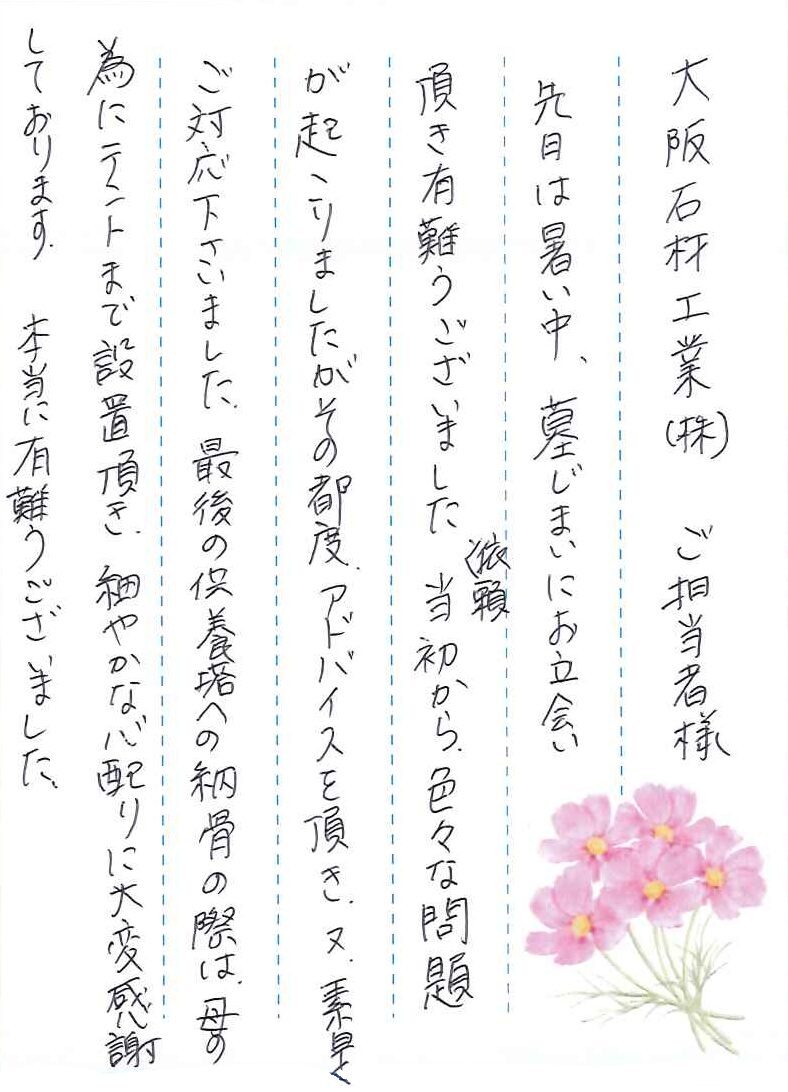 大阪石材工業(株) ご担当者様
先日は暑い中、墓じまいにお立会い
頂き有難うございました 当初依頼から、色々な問題
が起こりましたがその都度、アドバイスを頂き、又、素早く
ご対応下さいました。最後の供養塔への納骨の際は、母の
為にテントまで設置頂き、細やかな心配りに大変感謝
しております。 本当に有難うございました。